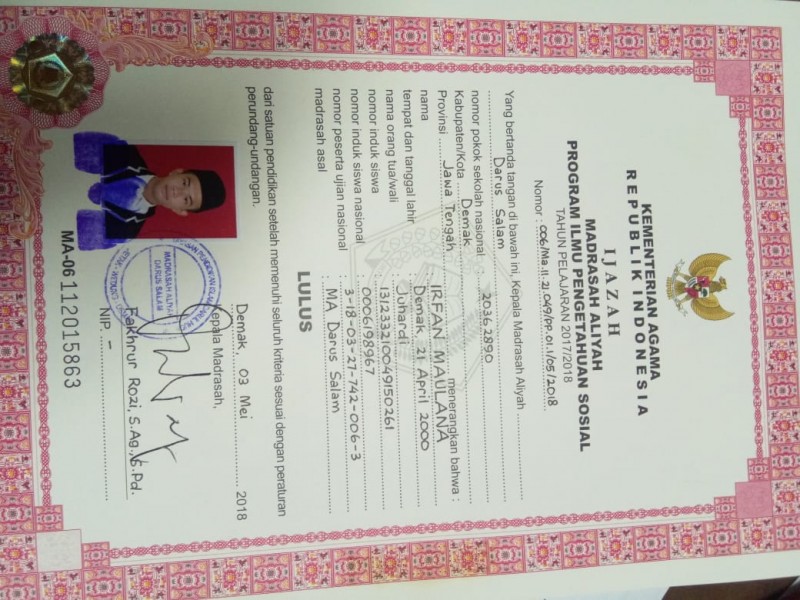 KEMENTERIAN AGAMA
REPUBLIK INDONESIA
IJAZAH
MADRASAH ALIYAH
PROGRAM ILMU PENGETAHUAN SOSIAL
TAHUN PELAJARAN 2017/2018
Nomor : 006/Ma.11.21.049/PP.01.1/05/2018
Yang bertanda tangan di bawah ini, Kepala Madrasah Aliyah
Darus Salam
nomor pokok sekolah nasional : 20362890
Kabupaten/Kota Demak
Provinsi Jawa Tengah menerangkan bahwa :
nama : IRFAN MAULANA
tempat dan tanggal lahir : Demak, 21 April 2000
nama orang tua/wali : Juhardi
nomor induk siswa : 131233210049150261
nomor induk siswa nasional : 0006198967
nomor peserta ujian nasional : 3-18-03-27-742-006-3
madrasah asal : MA Darus Salam
LULUS
dari satuan pendidikan setelah memenuhi seluruh kriteria sesuai dengan peraturan
perundang-undangan.
Demak, 03 Mei 2018
Kepala Madrasah,
MADRASAH ALIYAH
DARUS SALAM
Fakhrur Rozi, S.Ag., S.Pd.
NIP. -
MA-06 112015863